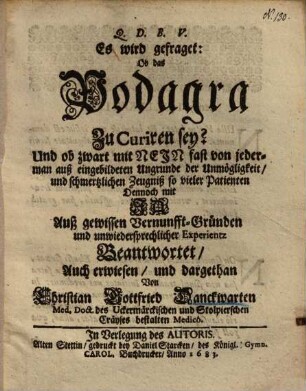 N. 130.
Q. D. B. V.
Es wird gefraget:
Ob das
Podagra
Zu Curiren sey?
Und ob zwart mit NEIN fast von jeder-
man auß eingebildeten Ungrunde der Unmögligkeit/
und schmertzlichen Zeugniß so vieler Patienten
Dennoch mit
JA
Auß gewissen Vernunfft-Gründen
und unwiedersprechlicher Experientz
Beantwortet/
Auch erwiesen/ und dargethan
Von
Christian Gottfried Vanckwarten
Med. Doct. des Uckermärckischen und Stolpierschen
Cräyses bestalten Medico.
In Verlegung des AUTORIS.
Alten Stettin/ gedruckt bey Daniel Starcken/ des Königl. Gymn.
CAROL. Buchdrucker/ Anno 1683.